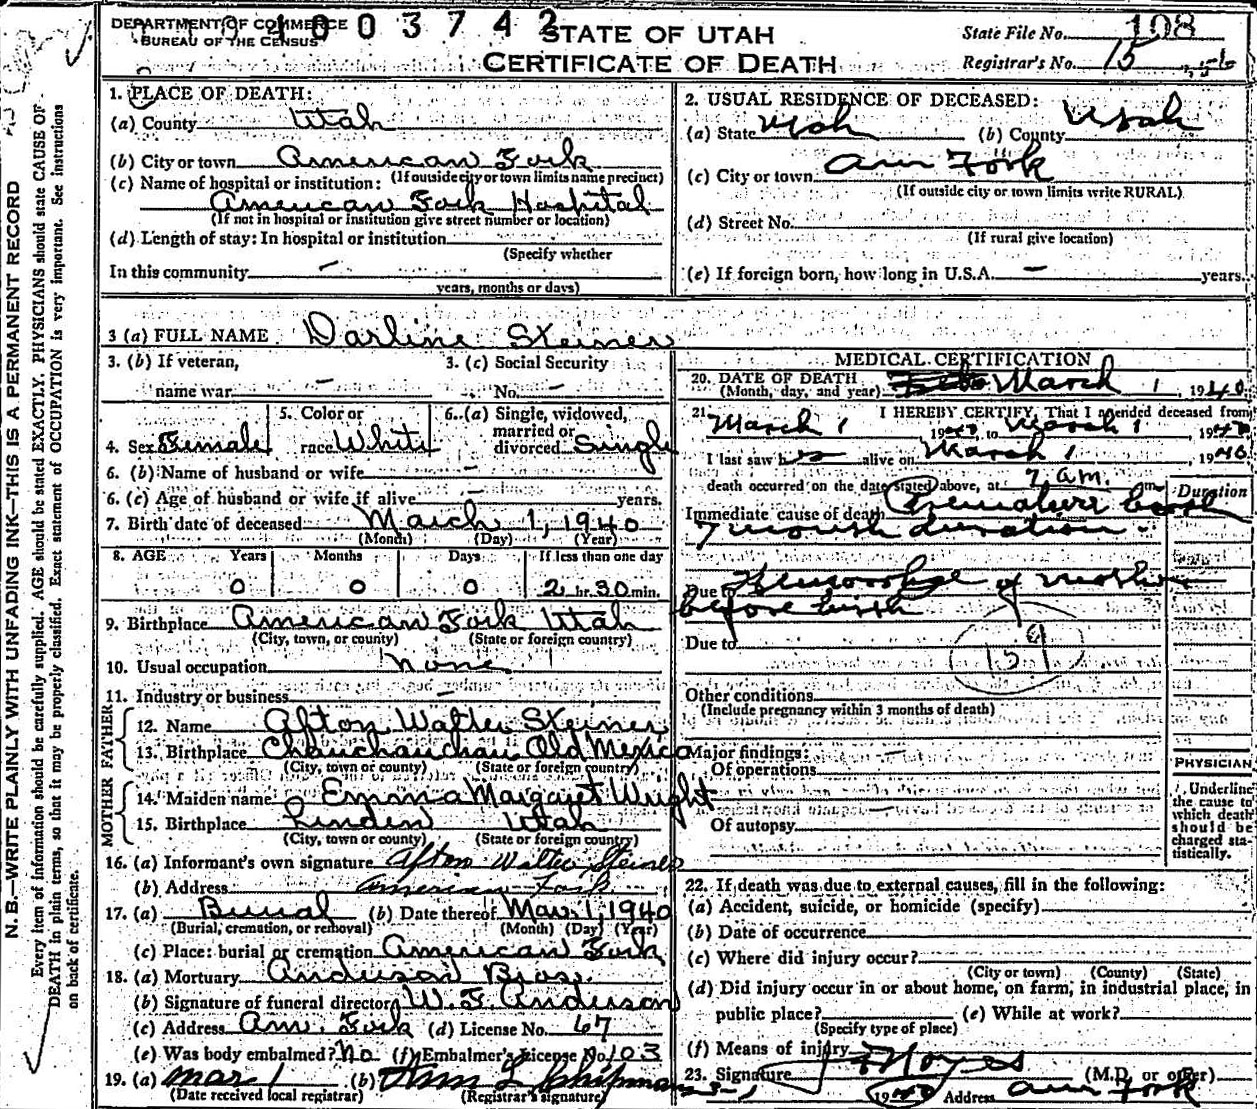 DEPARTMENT OF COMMERCE
BUREAU OF THE CENSUS
1003742
STATE OF UTAH
CERTIFICATE OF DEATH
State File No. 108
Registrar's No. 15
N.B.—WRITE PLAINLY WITH UNFADING INK—THIS IS A PERMANENT RECORD
Every item of information should be carefully supplied. AGE should be stated EXACTLY. PHYSICIANS should state CAUSE OF
DEATH in plain terms, so that it may be properly classified. Exact statement of OCCUPATION is very important. See instructions
on back of certificate.
1. PLACE OF DEATH:
(a) County Utah
(b) City or town American Fork
(If outside city or town limits name precinct)
(c) Name of hospital or institution:
American Fork Hospital
(If not in hospital or institution give street number or location)
(d) Length of stay: In hospital or institution
(Specify whether
In this community —
years, months or days)
2. USUAL RESIDENCE OF DECEASED:
(a) State Utah (b) County Utah
(c) City or town Am Fork
(If outside city or town limits write RURAL)
(d) Street No.
(If rural give location)
(e) If foreign born, how long in U.S.A. — years.
3 (a) FULL NAME Darline Steiner
3. (b) If veteran, 3. (c) Social Security
name war — No. —
4. Sex Female 5. Color or race White 6. (a) Single, widowed, married or divorced Single
6. (b) Name of husband or wife —
6. (c) Age of husband or wife if alive years.
7. Birth date of deceased March 1, 1940
(Month) (Day) (Year)
8. AGE Years Months Days If less than one day
0 0 0 2 hr. 30 min.
9. Birthplace American Fork Utah
(City, town, or county) (State or foreign country)
10. Usual occupation none
11. Industry or business —
FATHER
12. Name Afton Walter Steiner
13. Birthplace Chauchauchau Old Mexico
(City, town or county) (State or foreign country)
MOTHER
14. Maiden name Emma Margaret Wright
15. Birthplace Linden Utah
(City, town or county) (State or foreign country)
16. (a) Informant's own signature Afton Walter Steiner
(b) Address American Fork
17. (a) Burial (b) Date thereof Mar. 1, 1940
(Burial, cremation, or removal) (Month) (Day) (Year)
(c) Place: burial or cremation American Fork
18. (a) Mortuary Anderson Bros.
(b) Signature of funeral director W. F. Anderson
(c) Address Am. Fork (d) License No. 67
(e) Was body embalmed? No (f) Embalmer's License No. 103
19. (a) Mar 1 (b) L Chipman
(Date received local registrar) (Registrar's signature)
MEDICAL CERTIFICATION
20. DATE OF DEATH
(Month, day, and year) March 1, 1940
21. I HEREBY CERTIFY, That I attended deceased from
March 1 1940, to March 1, 1940
I last saw h alive on March 1, 1940
death occurred on the date stated above, at 7 am.
Duration
Immediate cause of death Premature birth
7 month duration
Due to Hemorrhage of mother
before birth
Due to
159
Other conditions
(Include pregnancy within 3 months of death)
Major findings:
Of operations
Of autopsy
PHYSICIAN
Underline
the cause to
which death
should be
charged sta-
tistically.
22. If death was due to external causes, fill in the following:
(a) Accident, suicide, or homicide (specify)
(b) Date of occurrence
(c) Where did injury occur?
(City or town) (County) (State)
(d) Did injury occur in or about home, on farm, in industrial place, in
public place? (e) While at work?
(Specify type of place)
(f) Means of injury
23. Signature Noyes (M.D. or other)
3-1 1940 Address Am Fork